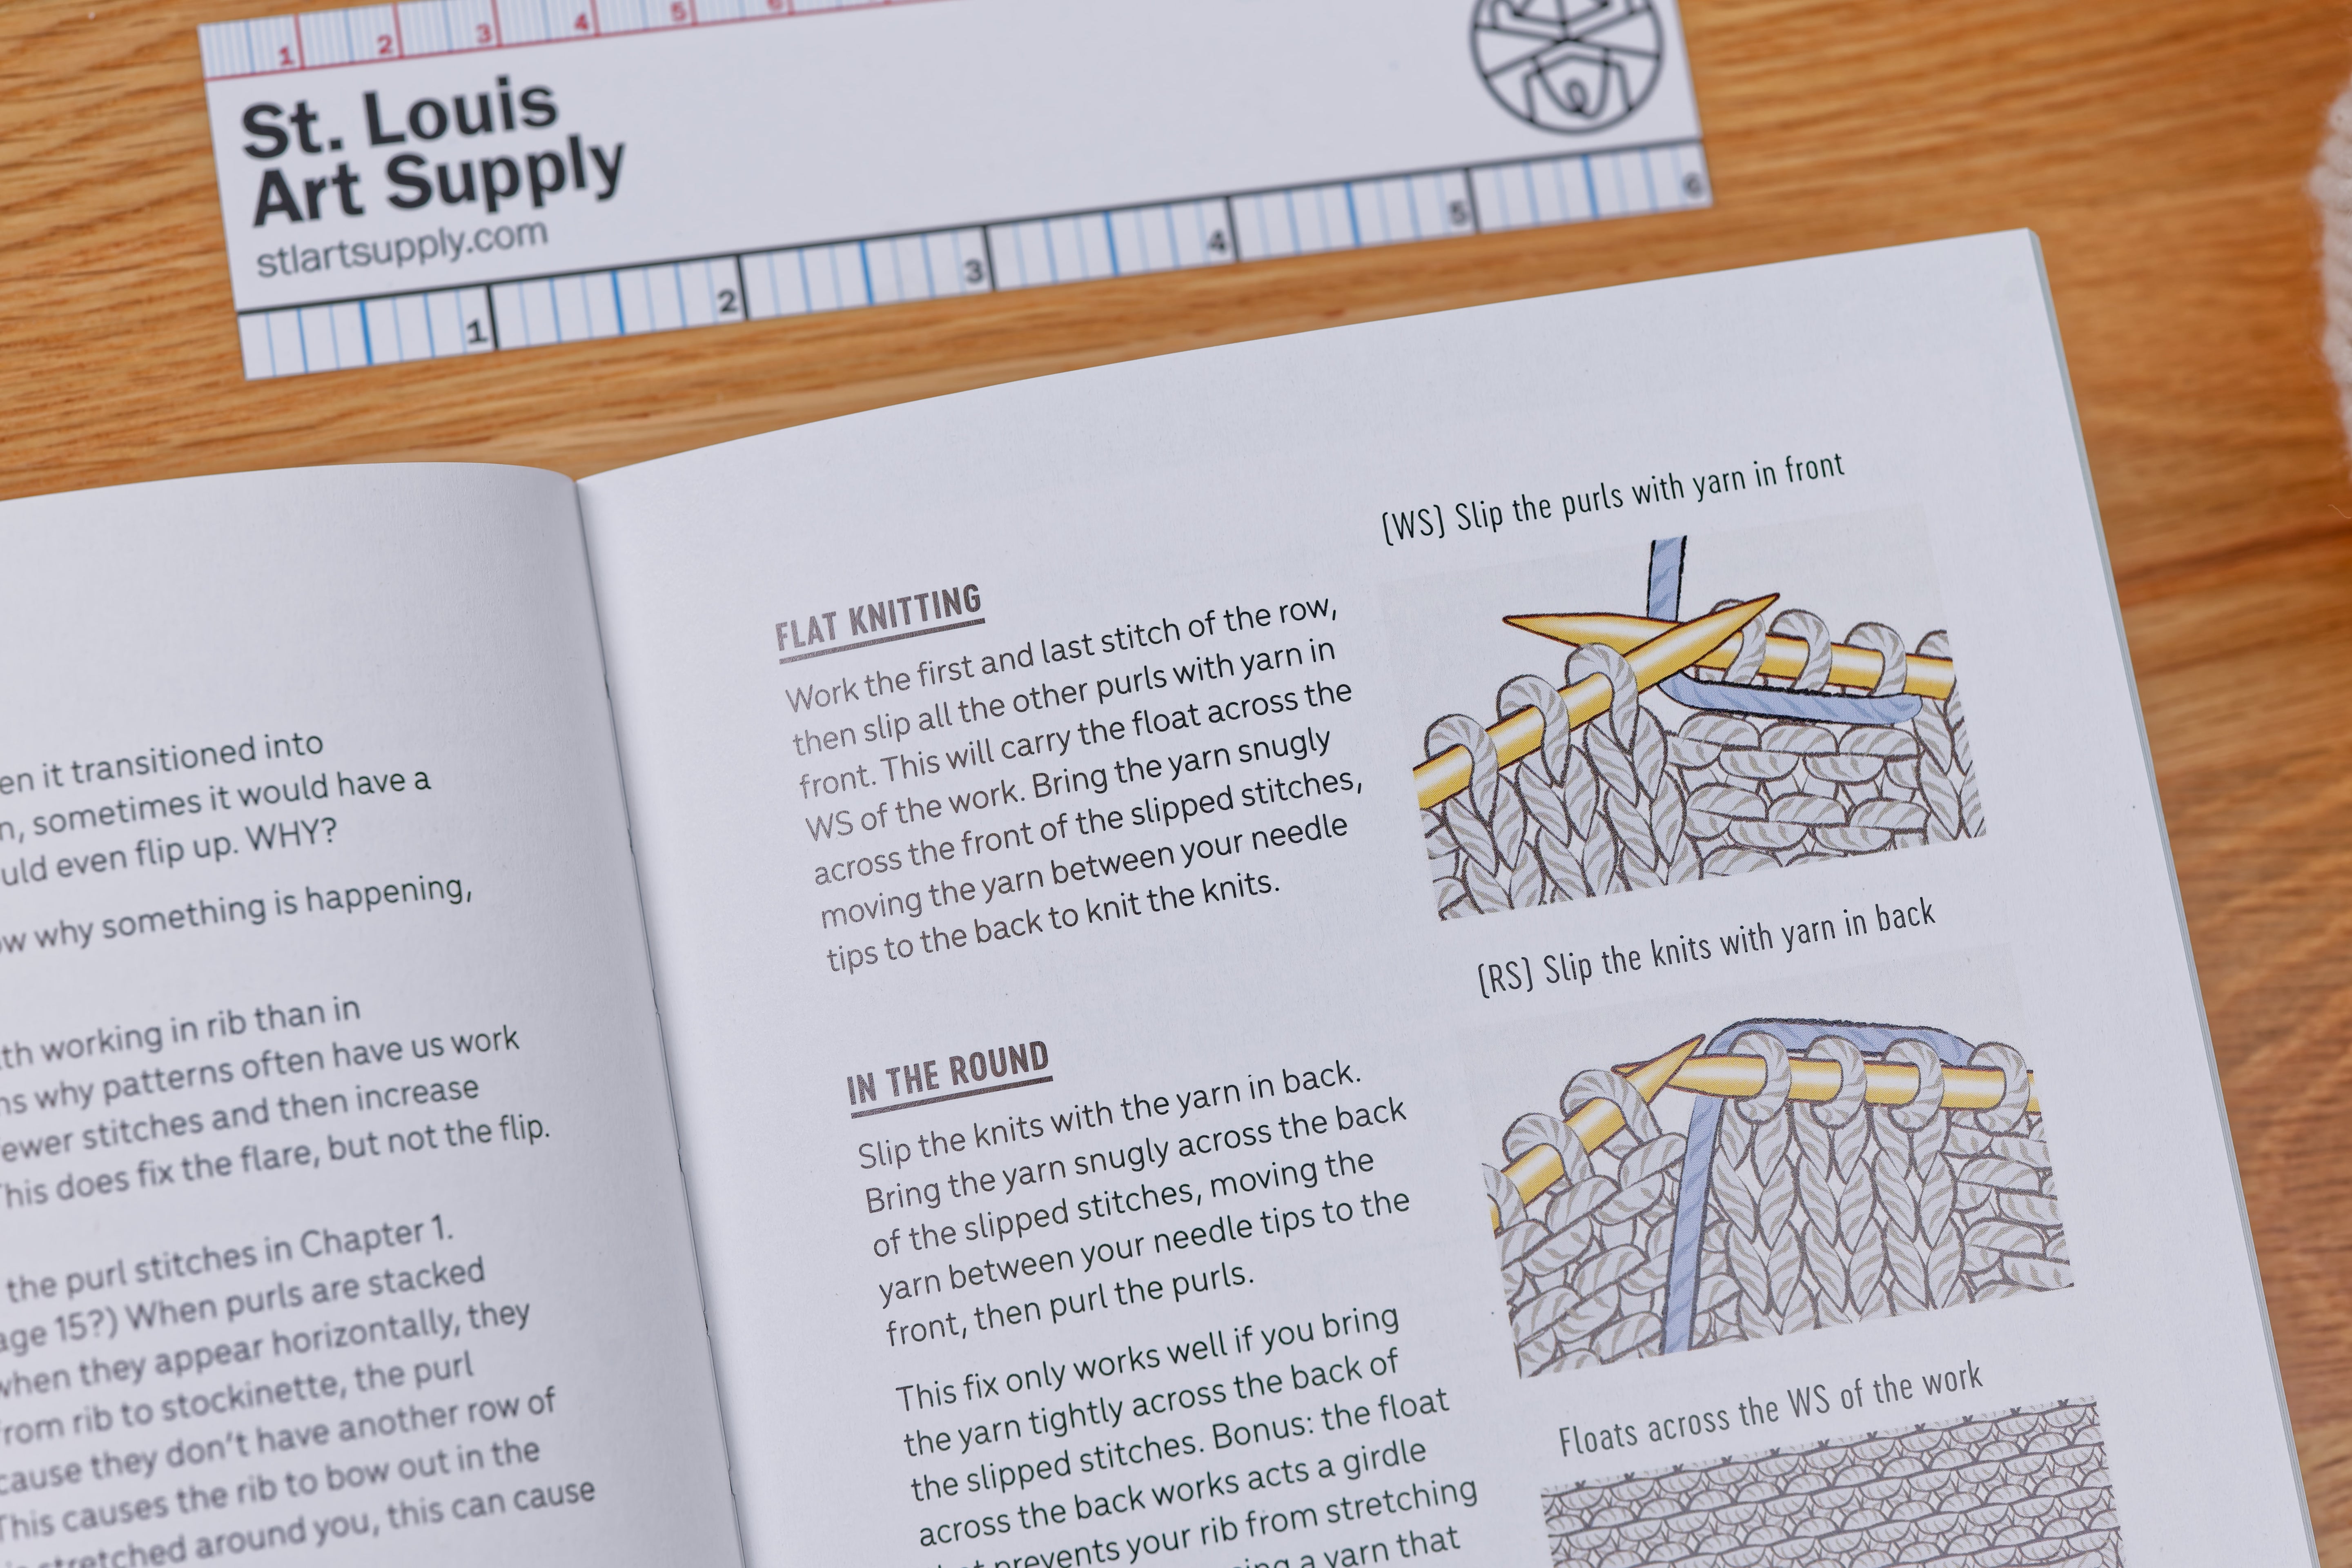 1 2 3 4 5 6
St. Louis
Art Supply
stlartsupply.com
1 2 3 4 5 6
en it transitioned into
n, sometimes it would have a
uld even flip up. WHY?
ow why something is happening,
th working in rib than in
ns why patterns often have us work
ewer stitches and then increase
This does fix the flare, but not the flip.
the purl stitches in Chapter 1.
age 15?) When purls are stacked
when they appear horizontally, they
from rib to stockinette, the purl
cause they don't have another row of
This causes the rib to bow out in the
stretched around you, this can cause
FLAT KNITTING
Work the first and last stitch of the row,
then slip all the other purls with yarn in
front. This will carry the float across the
WS of the work. Bring the yarn snugly
across the front of the slipped stitches,
moving the yarn between your needle
tips to the back to knit the knits.
IN THE ROUND
Slip the knits with the yarn in back.
Bring the yarn snugly across the back
of the slipped stitches, moving the
yarn between your needle tips to the
front, then purl the purls.
This fix only works well if you bring
the yarn tightly across the back of
the slipped stitches. Bonus: the float
across the back works acts a girdle
prevents your rib from stretching
a yarn that
(WS) Slip the purls with yarn in front
(RS) Slip the knits with yarn in back
Floats across the WS of the work